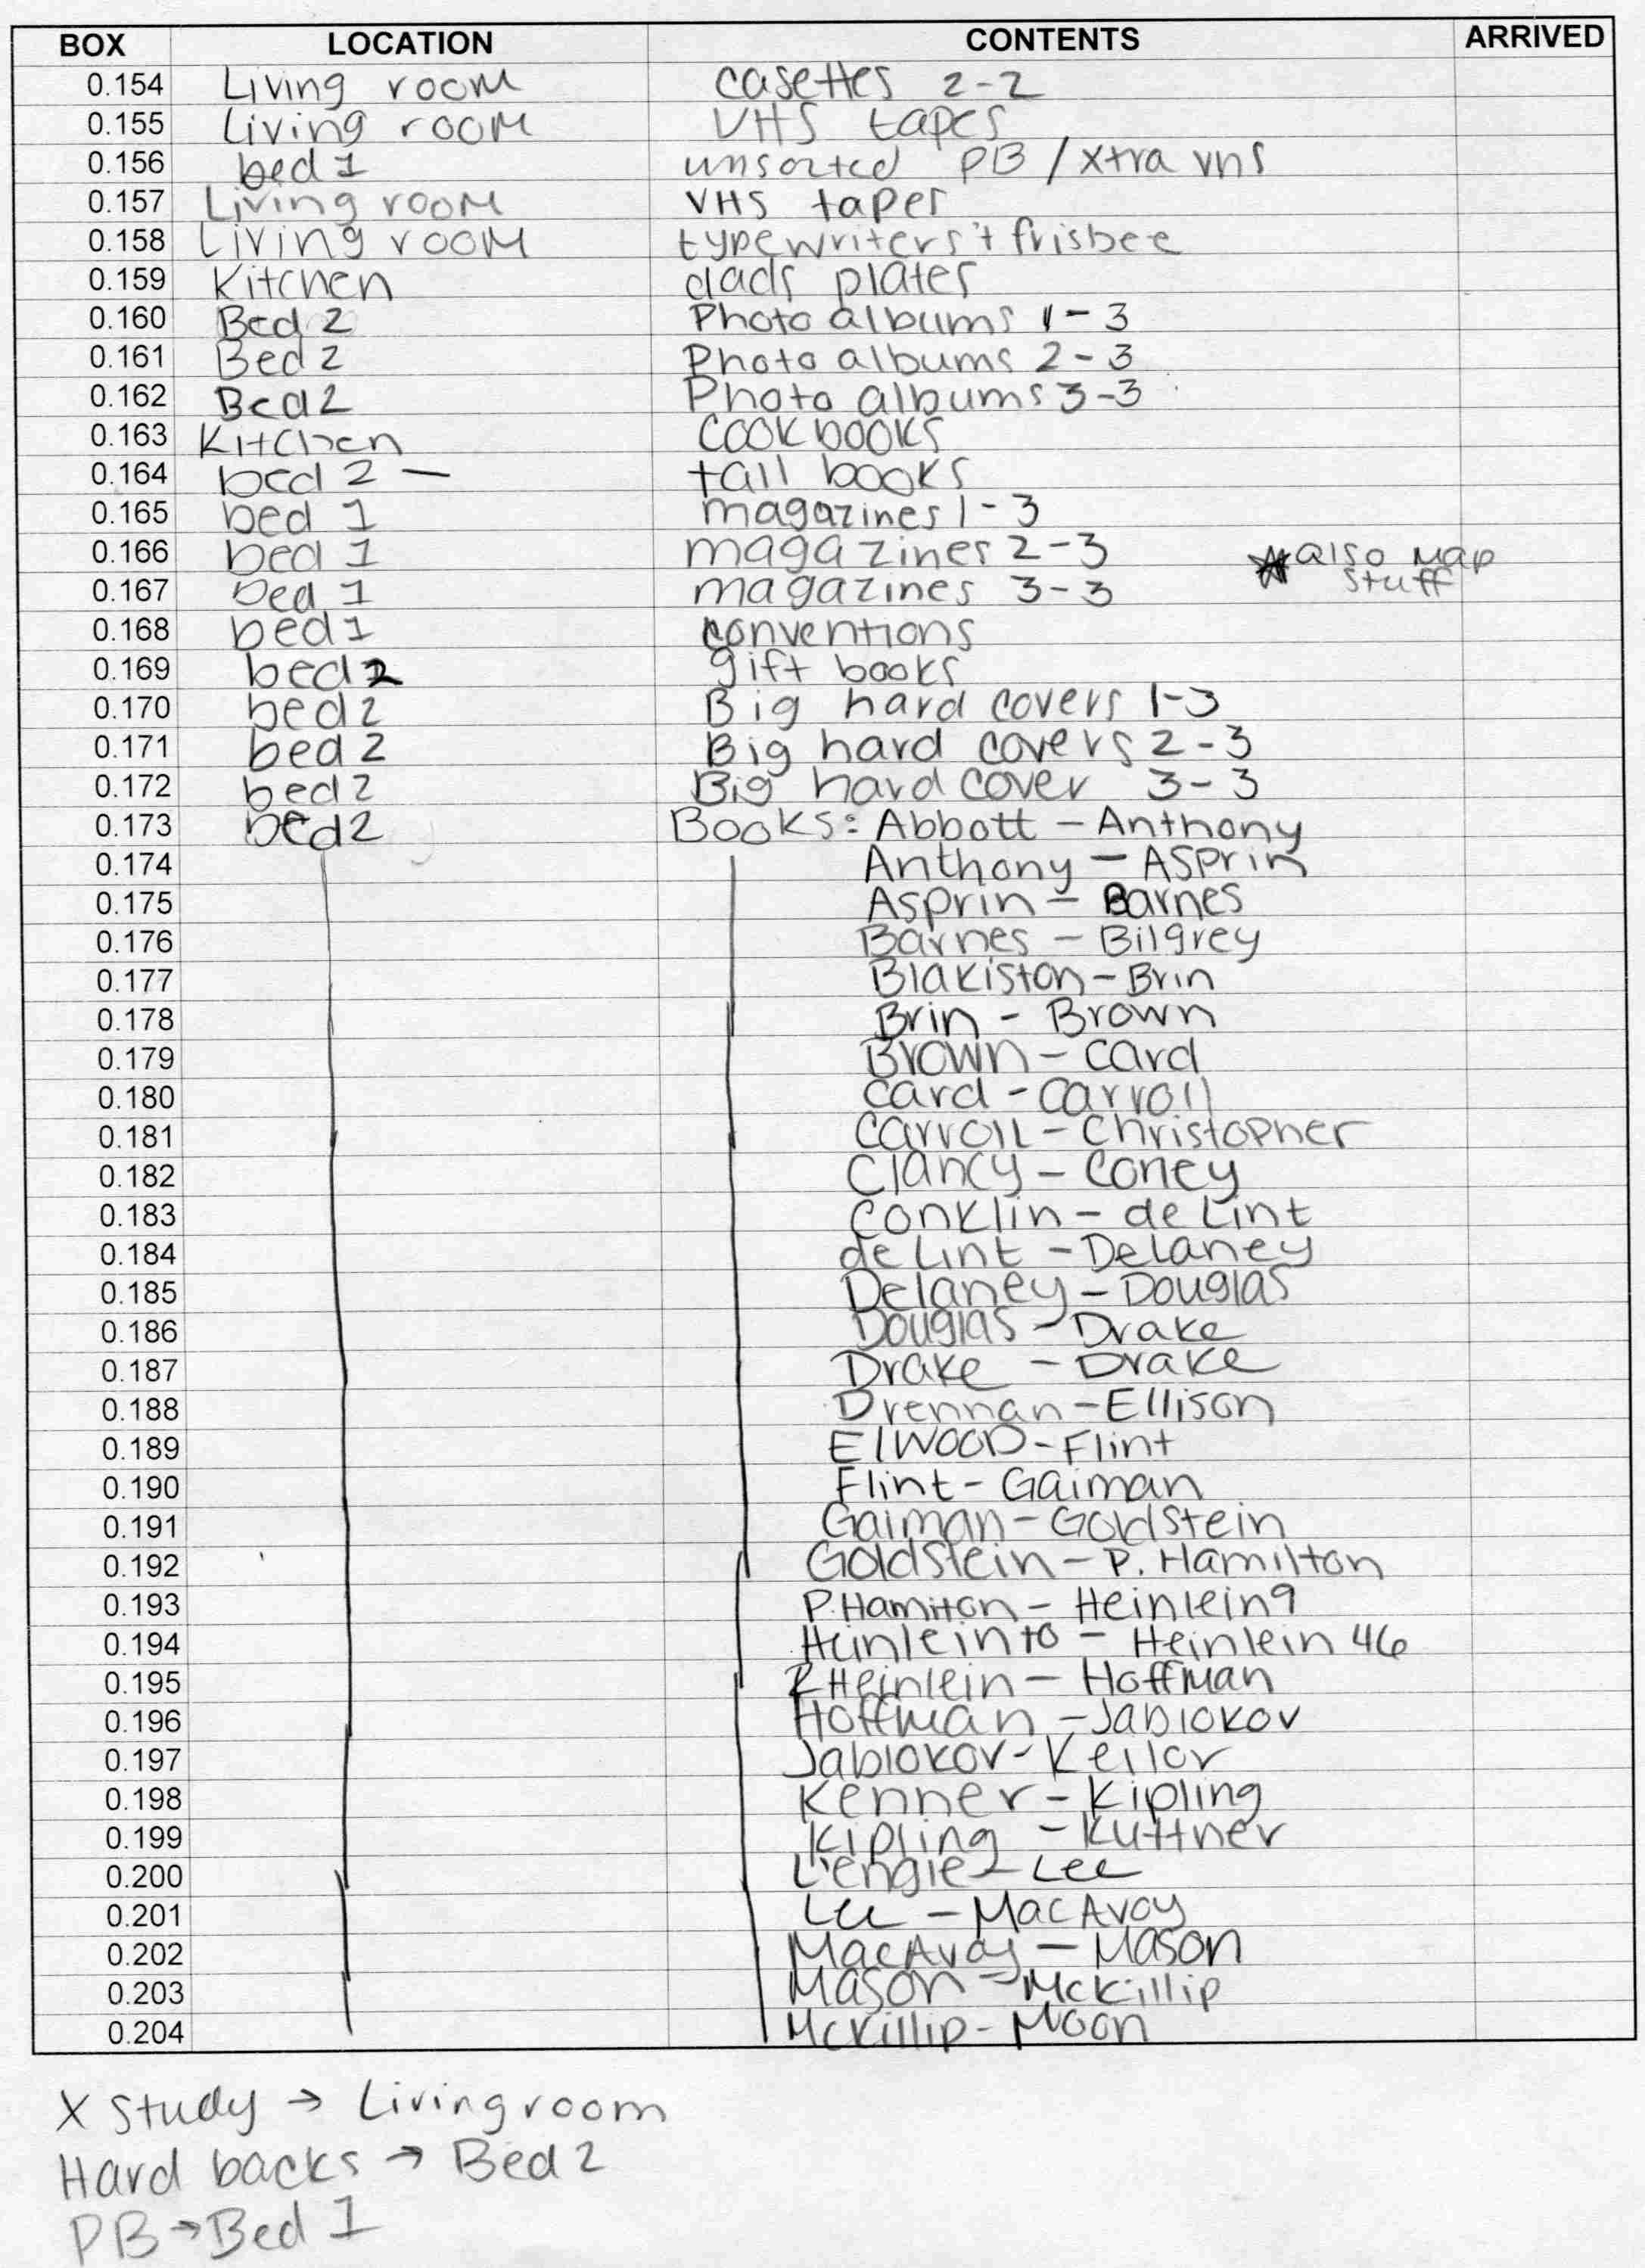 BOX LOCATION CONTENTS ARRIVED
0.154 Living room casettes 2-2
0.155 Living room VHS tapes
0.156 bed 1 unsorted PB / xtra vhs
0.157 Living room VHS tapes
0.158 Living room typewriters + frisbee
0.159 Kitchen dads plates
0.160 Bed 2 Photo albums 1-3
0.161 Bed 2 Photo albums 2-3
0.162 Bed 2 Photo albums 3-3
0.163 Kitchen Cookbooks
0.164 bed 2 — tall books
0.165 bed 1 magazines 1-3
0.166 bed 1 magazines 2-3 ★ also map
0.167 bed 1 magazines 3-3 stuff
0.168 bed 1 conventions
0.169 bed 2 gift books
0.170 bed 2 Big hard covers 1-3
0.171 bed 2 Big hard covers 2-3
0.172 bed 2 Big hard cover 3-3
0.173 bed 2 Books: Abbott - Anthony
0.174 Anthony - Asprin
0.175 Asprin - Barnes
0.176 Barnes - Bilgrey
0.177 Blakiston - Brin
0.178 Brin - Brown
0.179 Brown - Card
0.180 Card - Carroll
0.181 Carroll - Christopher
0.182 Clancy - Coney
0.183 Conklin - de Lint
0.184 de Lint - Delaney
0.185 Delaney - Douglas
0.186 Douglas - Drake
0.187 Drake - Drake
0.188 Drennan - Ellison
0.189 Elwood - Flint
0.190 Flint - Gaiman
0.191 Gaiman - Goldstein
0.192 Goldstein - P. Hamilton
0.193 P. Hamilton - Heinlein 9
0.194 Heinlein 10 - Heinlein 46
0.195 R Heinlein - Hoffman
0.196 Hoffman - Jablokov
0.197 Jablokov - Keilor
0.198 Kenner - Kipling
0.199 Kipling - Kuttner
0.200 L'engle - Lee
0.201 Lee - MacAvoy
0.202 MacAvoy - Mason
0.203 Mason - McKillip
0.204 McKillip - Moon
X Study → Living room
Hard backs → Bed 2
PB → Bed 1